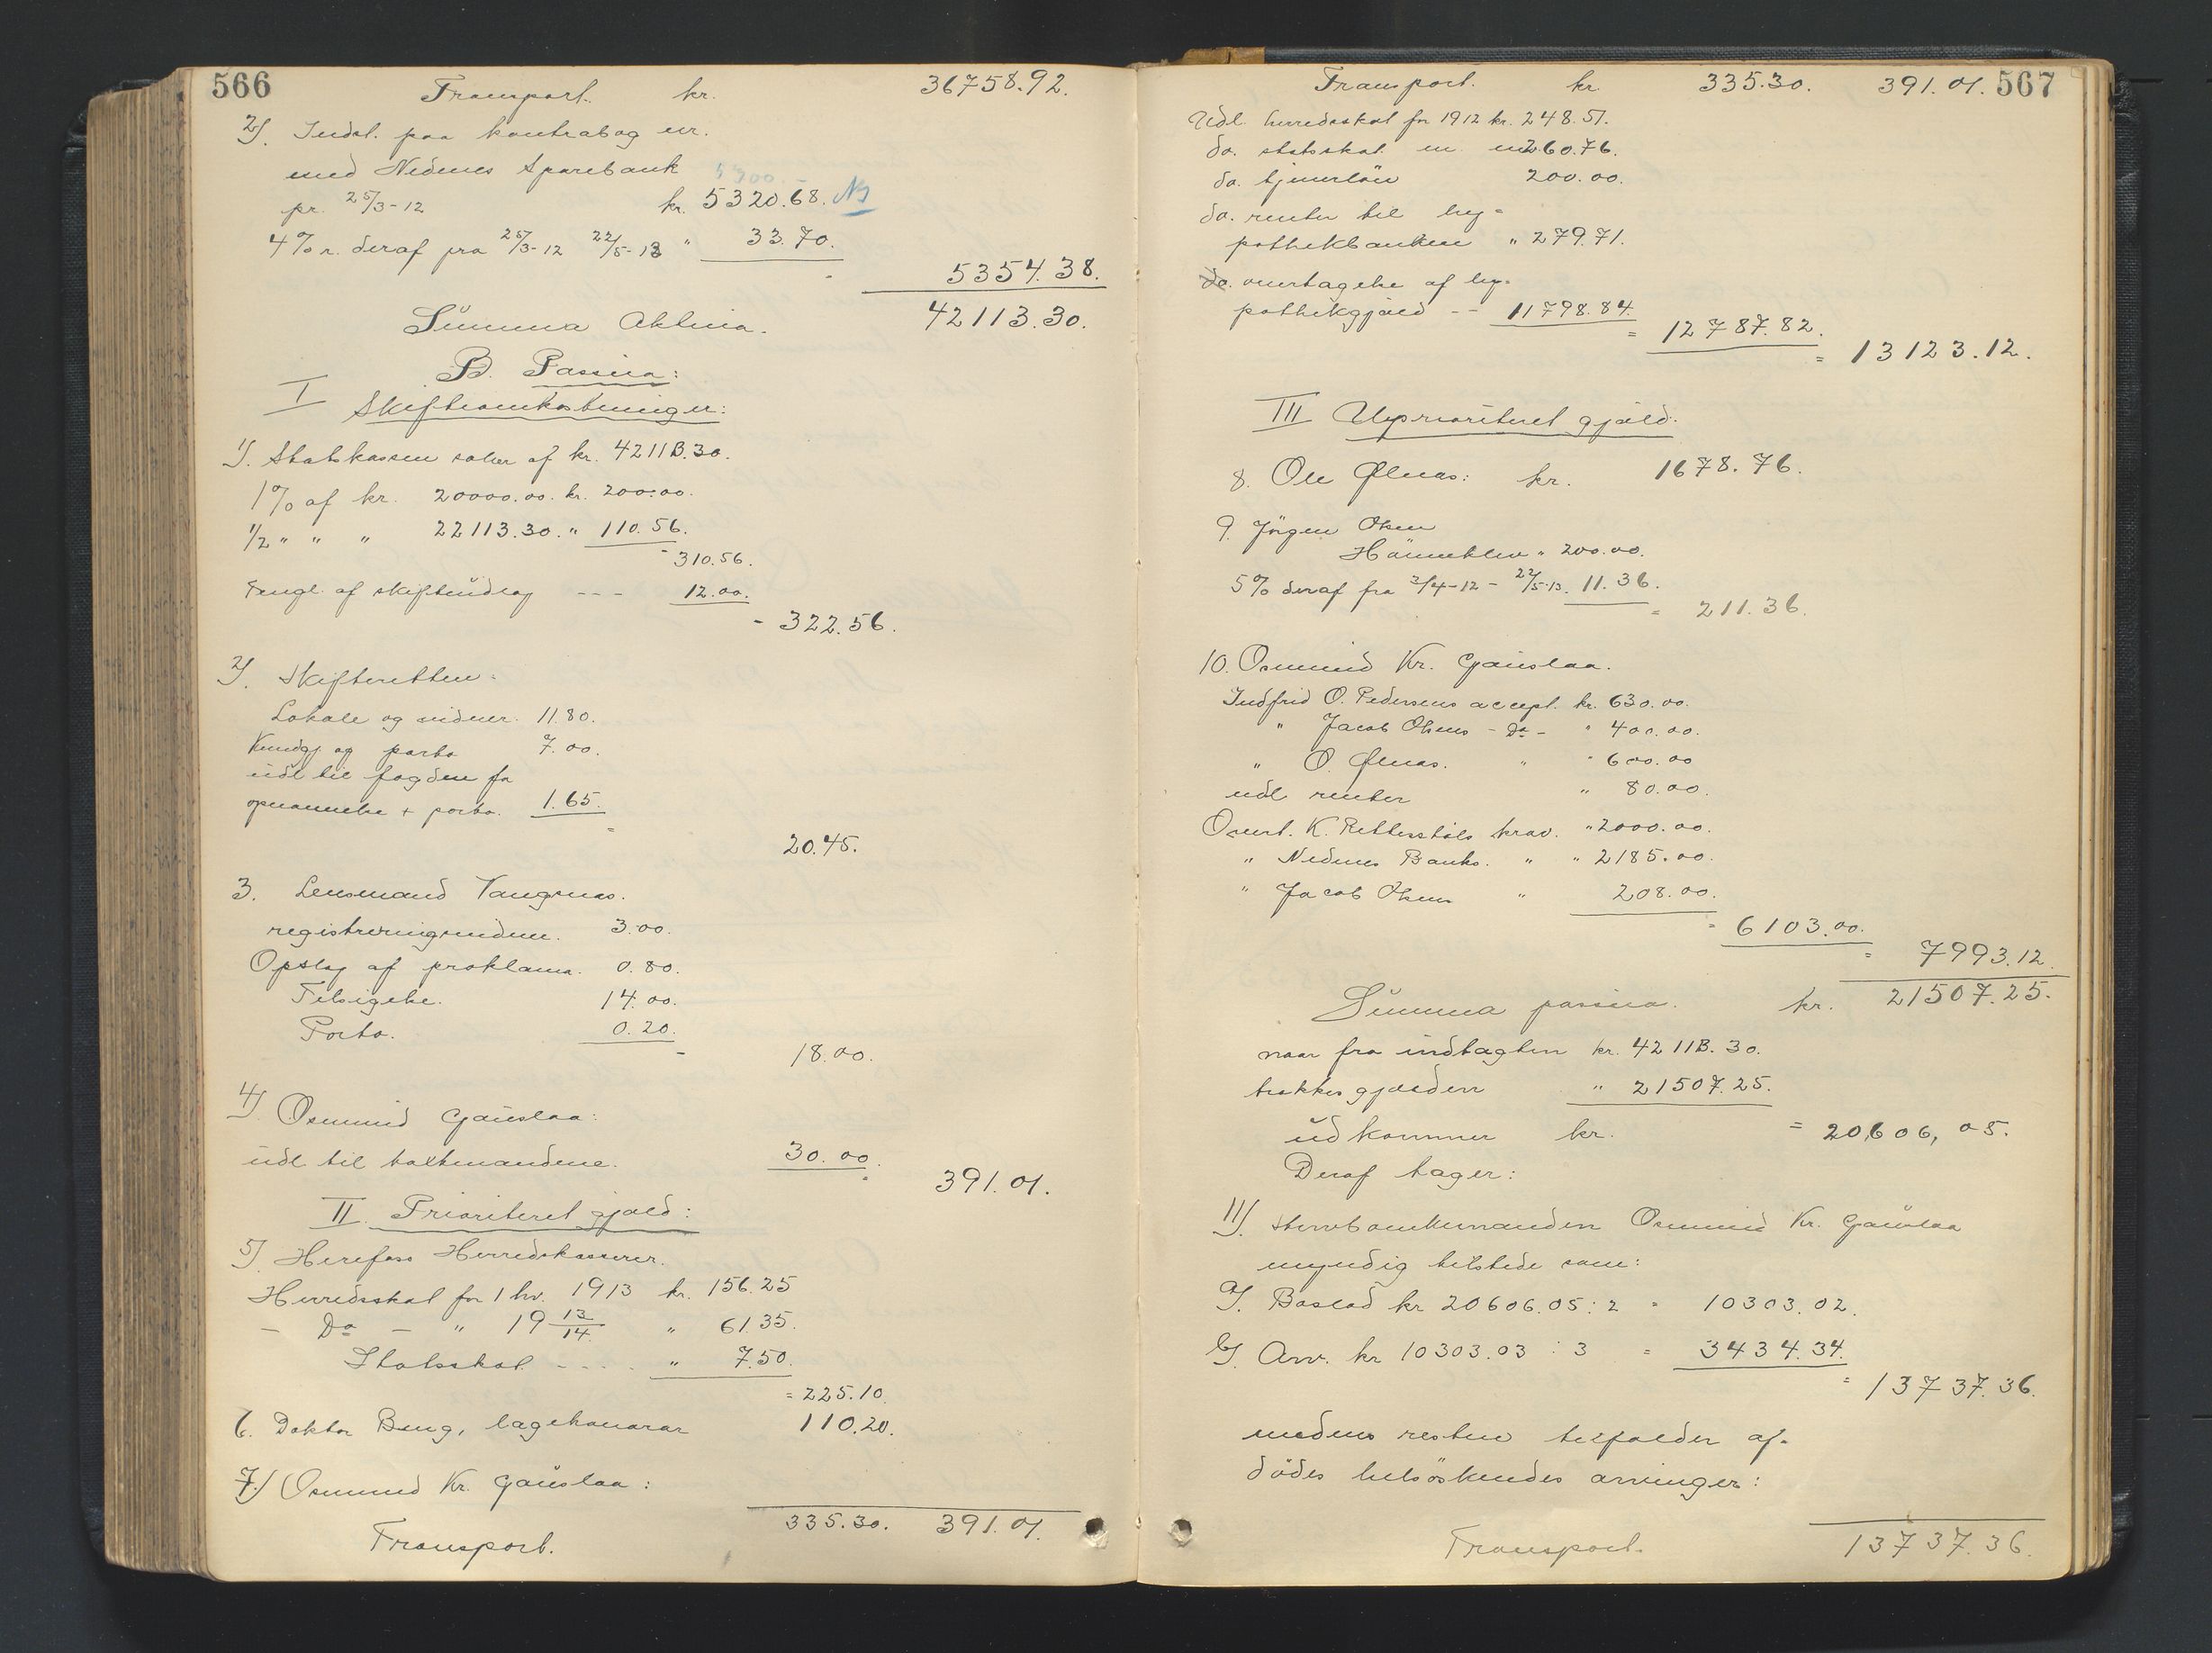 566
Transport. kr. 36758.92.
2/. Indst. paa kontrabog nr.
med Nedenes Sparebank 5300.-
pr. 25/3-12 kr. 5320.68. NB
4% r. deraf fra 25/3-12 22/5-13 " 33.70.
5354.38.
Summa Aktiva. 42113.30.
B. Passiva:
I Skifteomkostninger:
1/. Statskassen saker af kr. 42113.30.
1% af kr. 20000.00. kr. 200.00.
1/2 " " " 22113.30. " 110.56.
- 310.56.
Tingl. af skifteudlag --- 12.00.
- 322.56.
2/. Skifteretten:
Lokale og vidner. 11.80.
Kundgj. og porto 7.00.
udl til fogden for
opnævnelse + porto. 1.65.
= 20.45.
3. Lensmand Vangsnæs.
registreringsvidne. 3.00.
Opslag af proklama. 0.80.
Tilsigelse. 14.00.
Porto. 0.20.
- 18.00.
4/ Osmund Gauslaa:
udl til takstmændene. 30.00.
391.01.
II. Prioriteret gjæld:
5/. Herefoss Herredskasserer.
Herredsskat for 1 hv. 1913 kr. 156.25
- Do - " 19 13/14 " 61.35.
Statsskat ---- " 7.50.
= 225.10.
6. Doktor Beug, lægehonorar 110.20.
7/ Osmund Kr. Gauslaa:
Transport. 335.30. 391.01.
Transport. kr. 335.30. 391.01. 567
Udl. herredsskat for 1912 kr. 248.51.
do. statsskat " " 260.76.
do. tjenerløn 200.00.
do. renter til hy=
pothekbanken " 279.71.
do. overtagelse af hy=
pothekgjæld -- 11798.84.
= 12787.82.
= 13123.12.
III Uprioriteret gjæld.
8. Ole Ølnæs: kr. 1678.76.
9. Jørgen Olsen
Hanneklev " 200.00.
5% deraf fra 2/4-12 - 22/5-13. 11.36.
= 211.36.
10. Osmund Kr. Gauslaa.
Indfrid O. Pedersens accept. kr. 630.00.
" Jacob Olsens - Do - " 400.00.
" O. Ølnæs. " " 600.00
udl renter " 80.00.
Overt. K. Rettersdals krav. " 2000.00.
" Nedenes Banks. " " 2185.00.
" Jacob Olsens " 208.00.
= 6103.00.
= 7993.12.
Summa passiva. kr. 21507.25.
naar fra indtægten kr. 42113.30.
trækkes gjælden " 21507.25.
udkommer kr. = 20,606,05.
Deraf tager:
11/. Stervboenkemanden Osmund Kr. Gauslaa
myndig tilstede som:
a/. Boslod kr 20606.05 : 2 = 10303.02.
b/. Arv. kr 10303.03 : 3 = 3434.34.
= 13737.36.
medens resten tilfalder af=
dødes helsøskendes arvinger:
Transport. 13737.36.